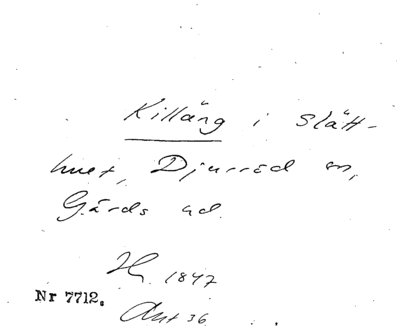 Killäng i Slätt-
huet, Djurröd sn,
Gärds hd.
H. 1847
Nr 7712.
Ant 36